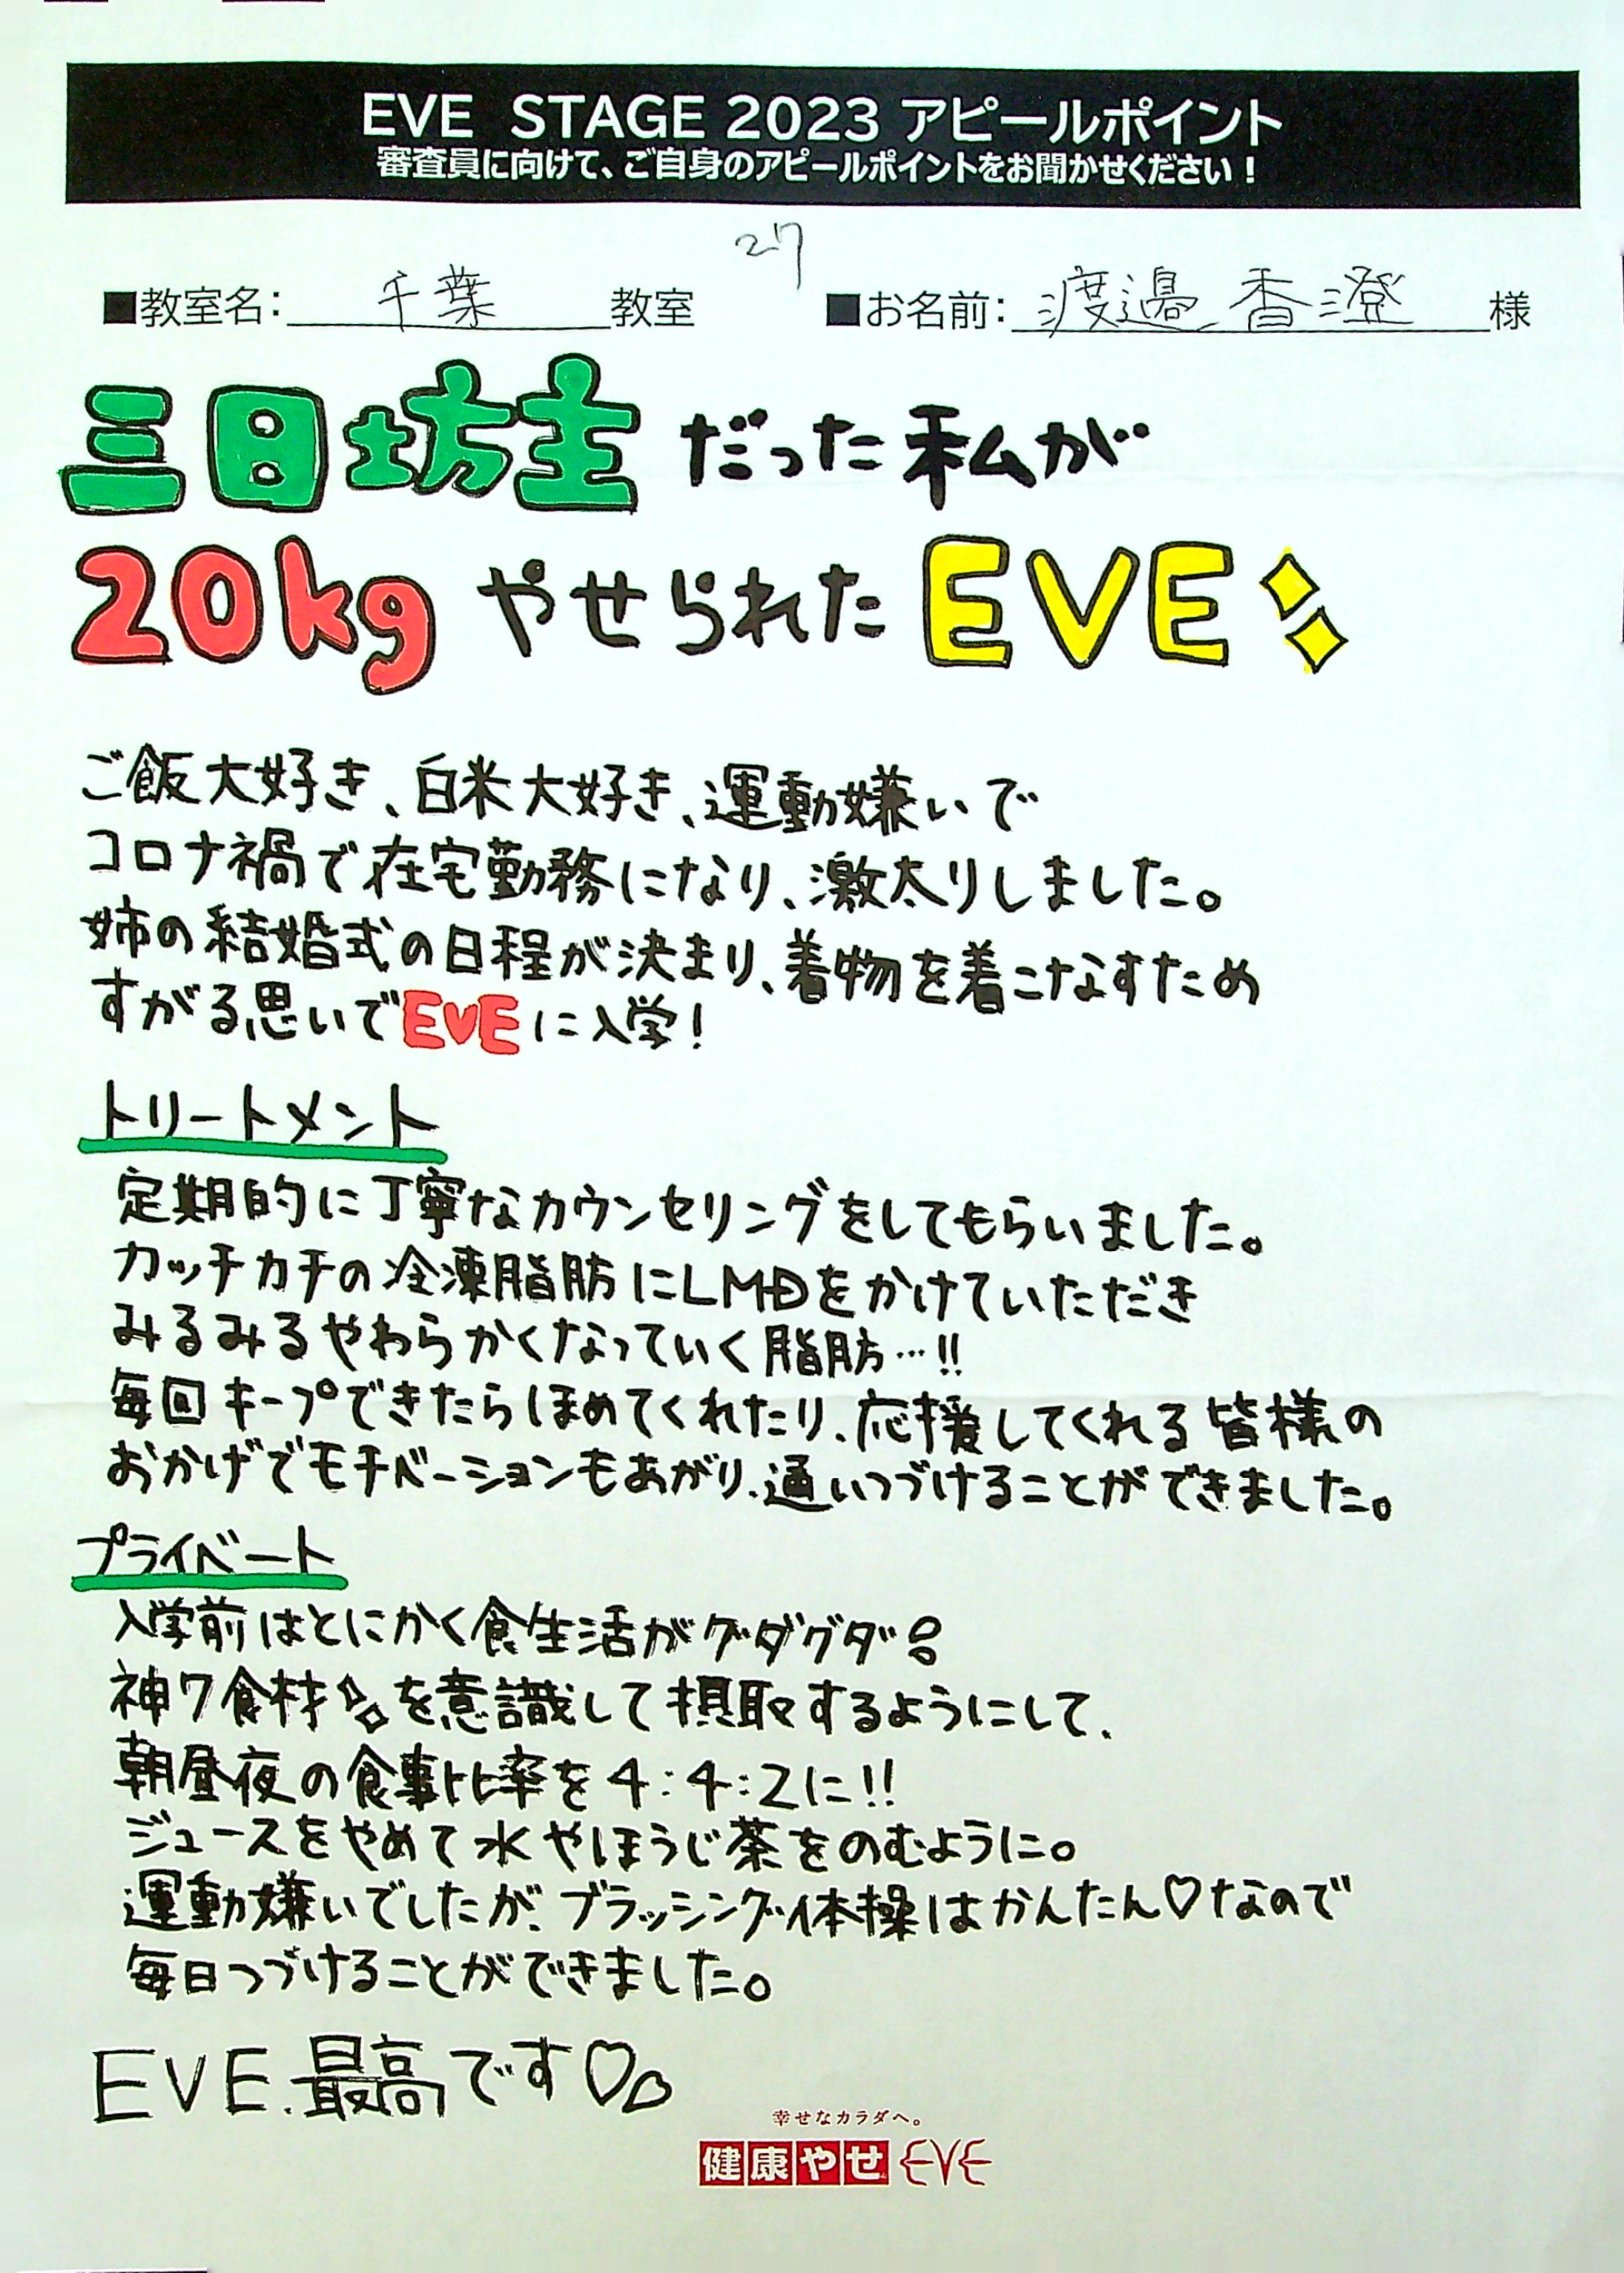 EVE STAGE 2023 アピールポイント
審査員に向けて、ご自身のアピールポイントをお聞かせください！
27
■教室名：千葉教室 ■お名前：渡邉香澄様
三日坊主だった私が
20kgやせられたEVE
ご飯大好き、白米大好き、運動嫌いで
コロナ禍で在宅勤務になり、激太りしました。
姉の結婚式の日程が決まり、着物を着こなすため
すがる思いでEVEに入学！
トリートメント
定期的に丁寧なカウンセリングをしてもらいました。
カッチカチの冷凍脂肪にLMDをかけていただき
みるみるやわらかくなっていく脂肪…!!
毎回キープできたらほめてくれたり、応援してくれる皆様の
おかげでモチベーションもあがり、通いつづけることができました。
プライベート
入学前はとにかく食生活がグダグダ
神7食材を意識して摂取するようにして、
朝昼夜の食事比率を4:4:2に!!
ジュースをやめて水やほうじ茶をのむように。
運動嫌いでしたが、ブラッシング体操はかんたん♡なので
毎日つづけることができました。
EVE.最高です♡♡
幸せなカラダへ。
健康やせ EVE